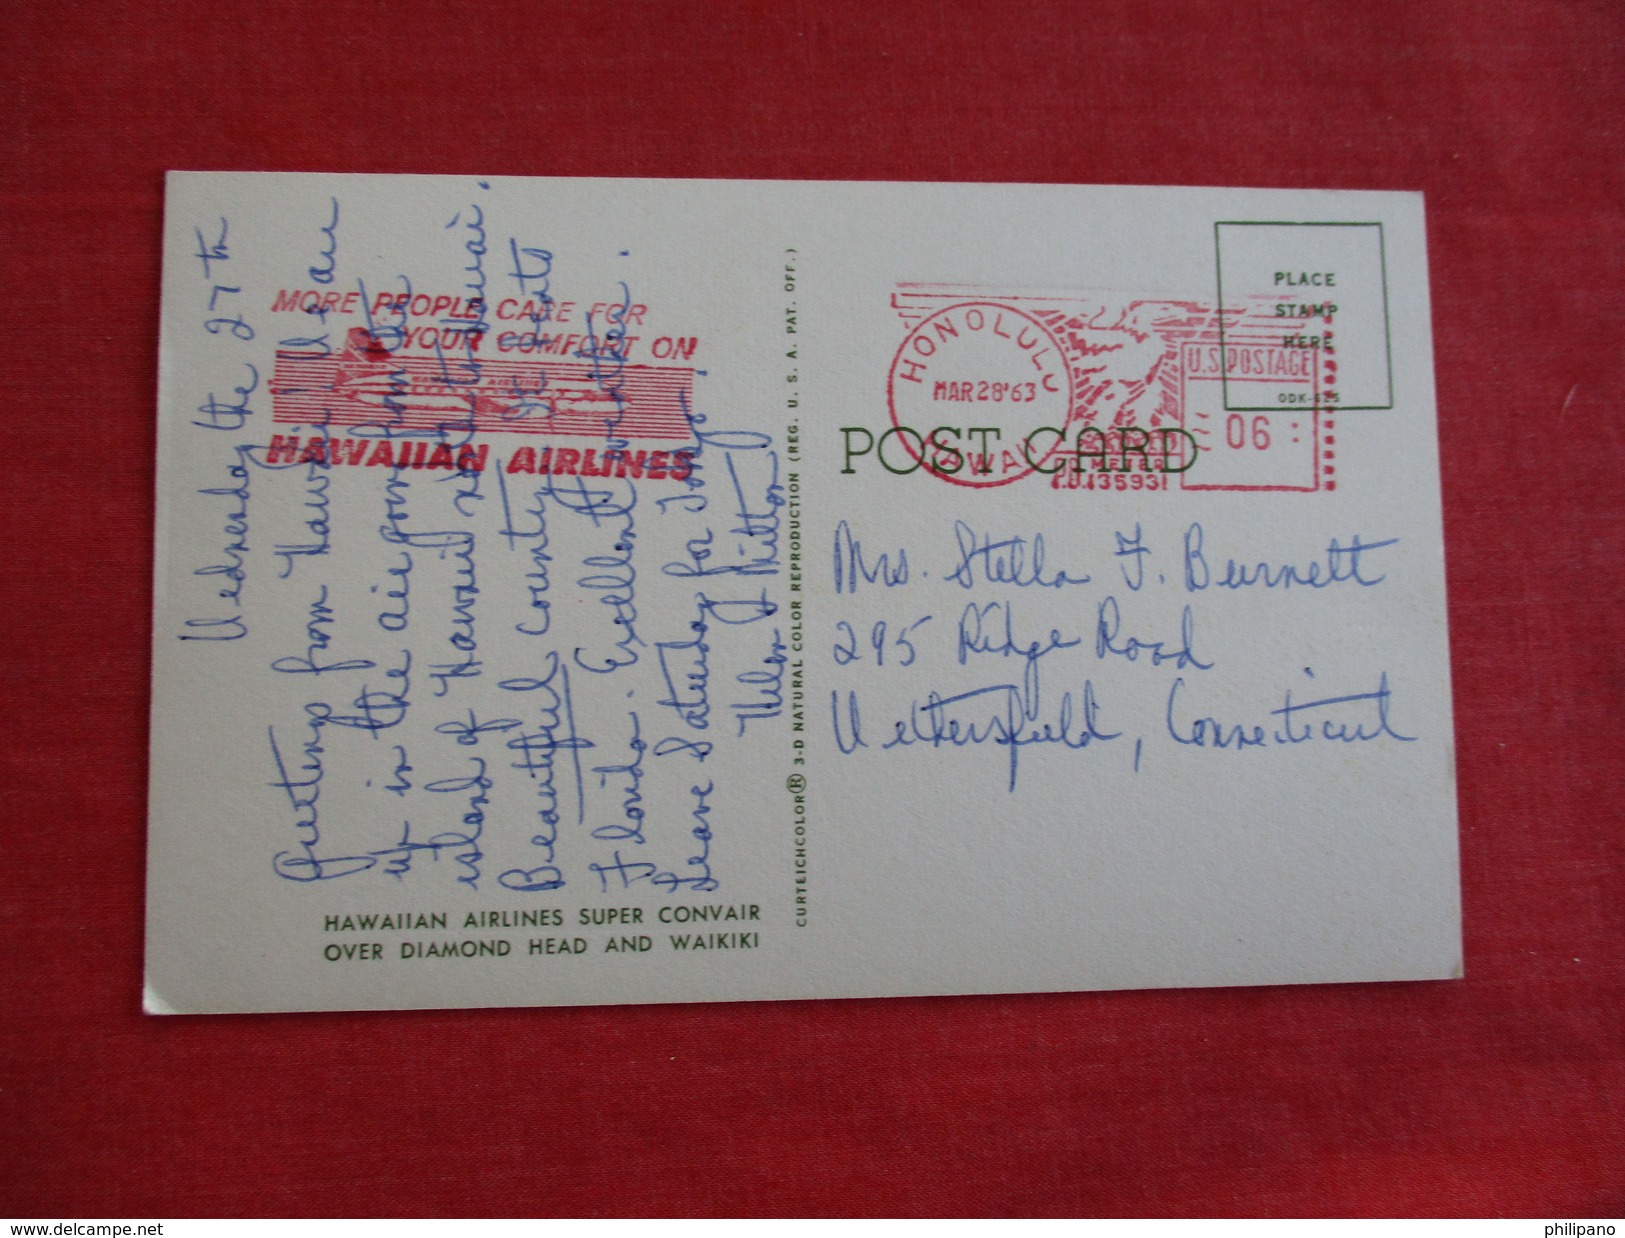 Wednesday the 27th
Greetings from Hawaii! We are
up in the air going from the
island of Hawaii to Kauai.
Beautiful country
Florida. Excellent weather.
Leave Saturday for Tokyo.
Helen & Milton
MORE PEOPLE CARE FOR
YOUR COMFORT ON
HAWAIIAN AIRLINES
HAWAIIAN AIRLINES SUPER CONVAIR
OVER DIAMOND HEAD AND WAIKIKI
CURTEICHCOLOR® 3-D NATURAL COLOR REPRODUCTION (REG. U. S. A. PAT. OFF.)
PLACE
STAMP
HERE
HONOLULU
MAR 28 '63
U.S. POSTAGE
06
METER
POST CARD
Mrs. Stella F. Burnett
295 Ridge Road
Wethersfield, Connecticut
philipano